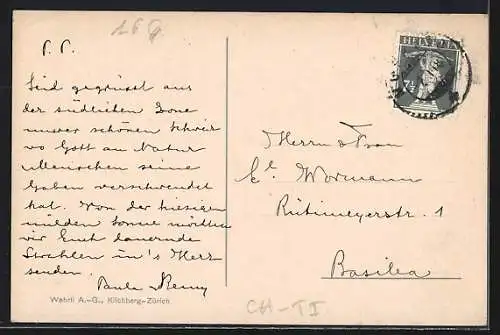 166
P. P.
Seid gegrüsst aus
der südlichen Zone
unserer schönen Schweiz
wo Gott an Natur
Menschen seine
Gaben verschwendet
hat. Von der hiesigen
milden Sonne möchten
wir Euch dauernde
Strahlen in's Herz
senden.
Paula &
Wehrli A.-G., Kilchberg-Zürich
HELVETIA
7½
Herrn & Frau
E. Wormann
Rütimeyerstr. 1
Basilea
CH-TI